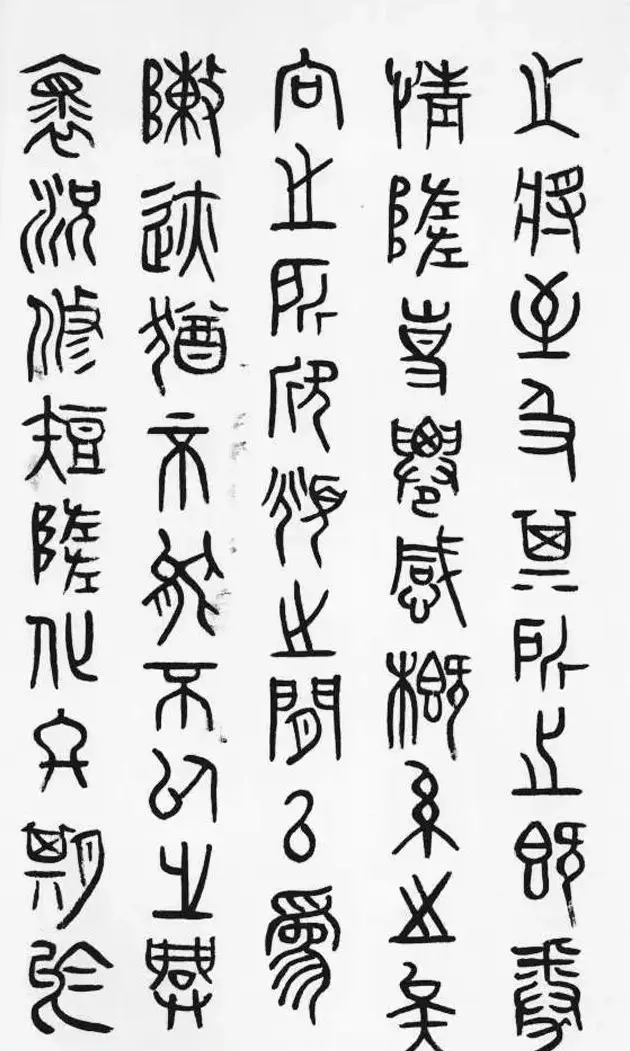 之將至及其所之既倦
情隨事遷感慨係之矣
向之所欣頫之間已為
陳迹猶不能不以之興
懷況修短隨化終期於